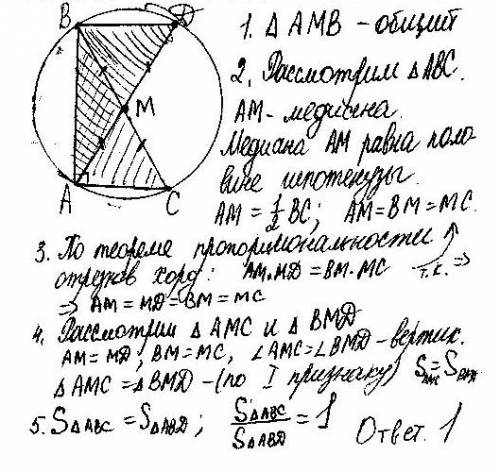 B D
M
A C
1. Δ AMB - общий
2. Рассмотрим ΔABC.
AM - медиана.
Медиана AM равна поло
вине гипотенузы.
AM = 1/2 BC; AM = BM = MC.
3. По теореме пропорциональности
отрезков хорд: AM·MD = BM·MC т.к. ⇒
⇒ AM = MD = BM = MC
4. Рассмотрим Δ AMC и Δ BMD
AM = MD; BM = MC, ∠AMC = ∠BMD - вертик.
Δ AMC = Δ BMD - (по I признаку) S AMC = S BMD
5. S ΔABC = S ΔABD; S ΔABC / S ΔABD = 1 Ответ. 1